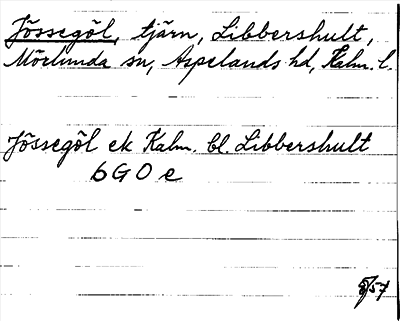 Jössegöl, tjärn, Libbershult,
Mörlunda sn, Aspelands hd, Kalm. l.
Jössegöl ek Kalm. bl. Libbershult
6 G 0 e
5/57